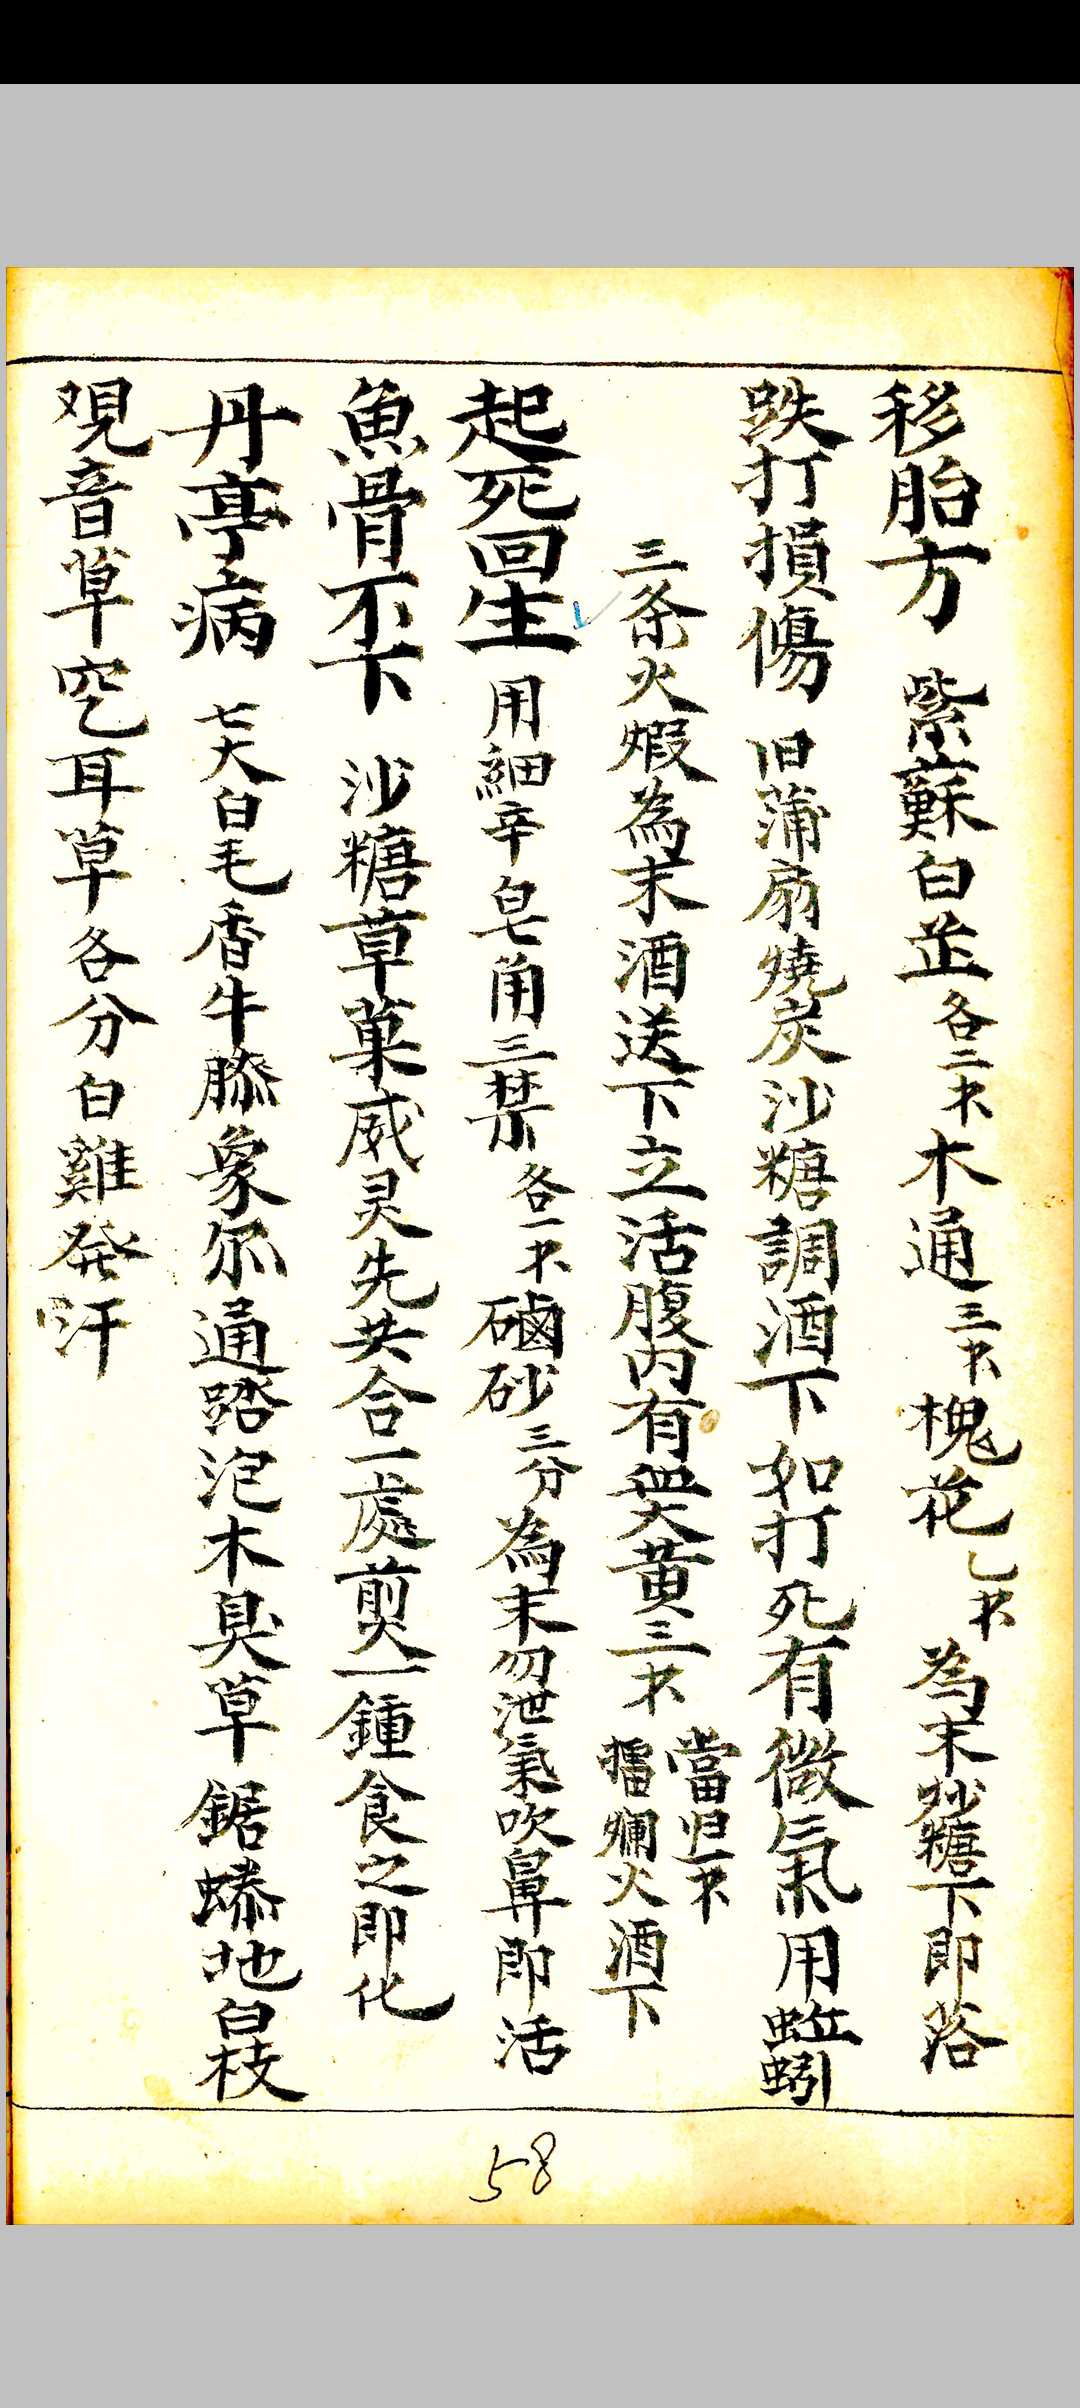 移胎方 紫蘇白芷各二才木通三才槐花乙才為末炒糖下即落
跌打損傷 旧蒲扇燒炭沙糖調酒下如打死有微氣用蚯蚓
三条火煆為末酒送下立活腹内有血大黄三才當归一才擂爛火酒下
起死回生 用細辛皂角三禁各一才磠砂三分為末勿泄氣吹鼻即活
魚骨不下 沙糖草菓威灵先共合一處煎一鍾食之即化
丹亭病 七大白毛香牛膝象尔通踏泡木臭草鋸地白枝
观音草空耳草各分白雞発汗
58